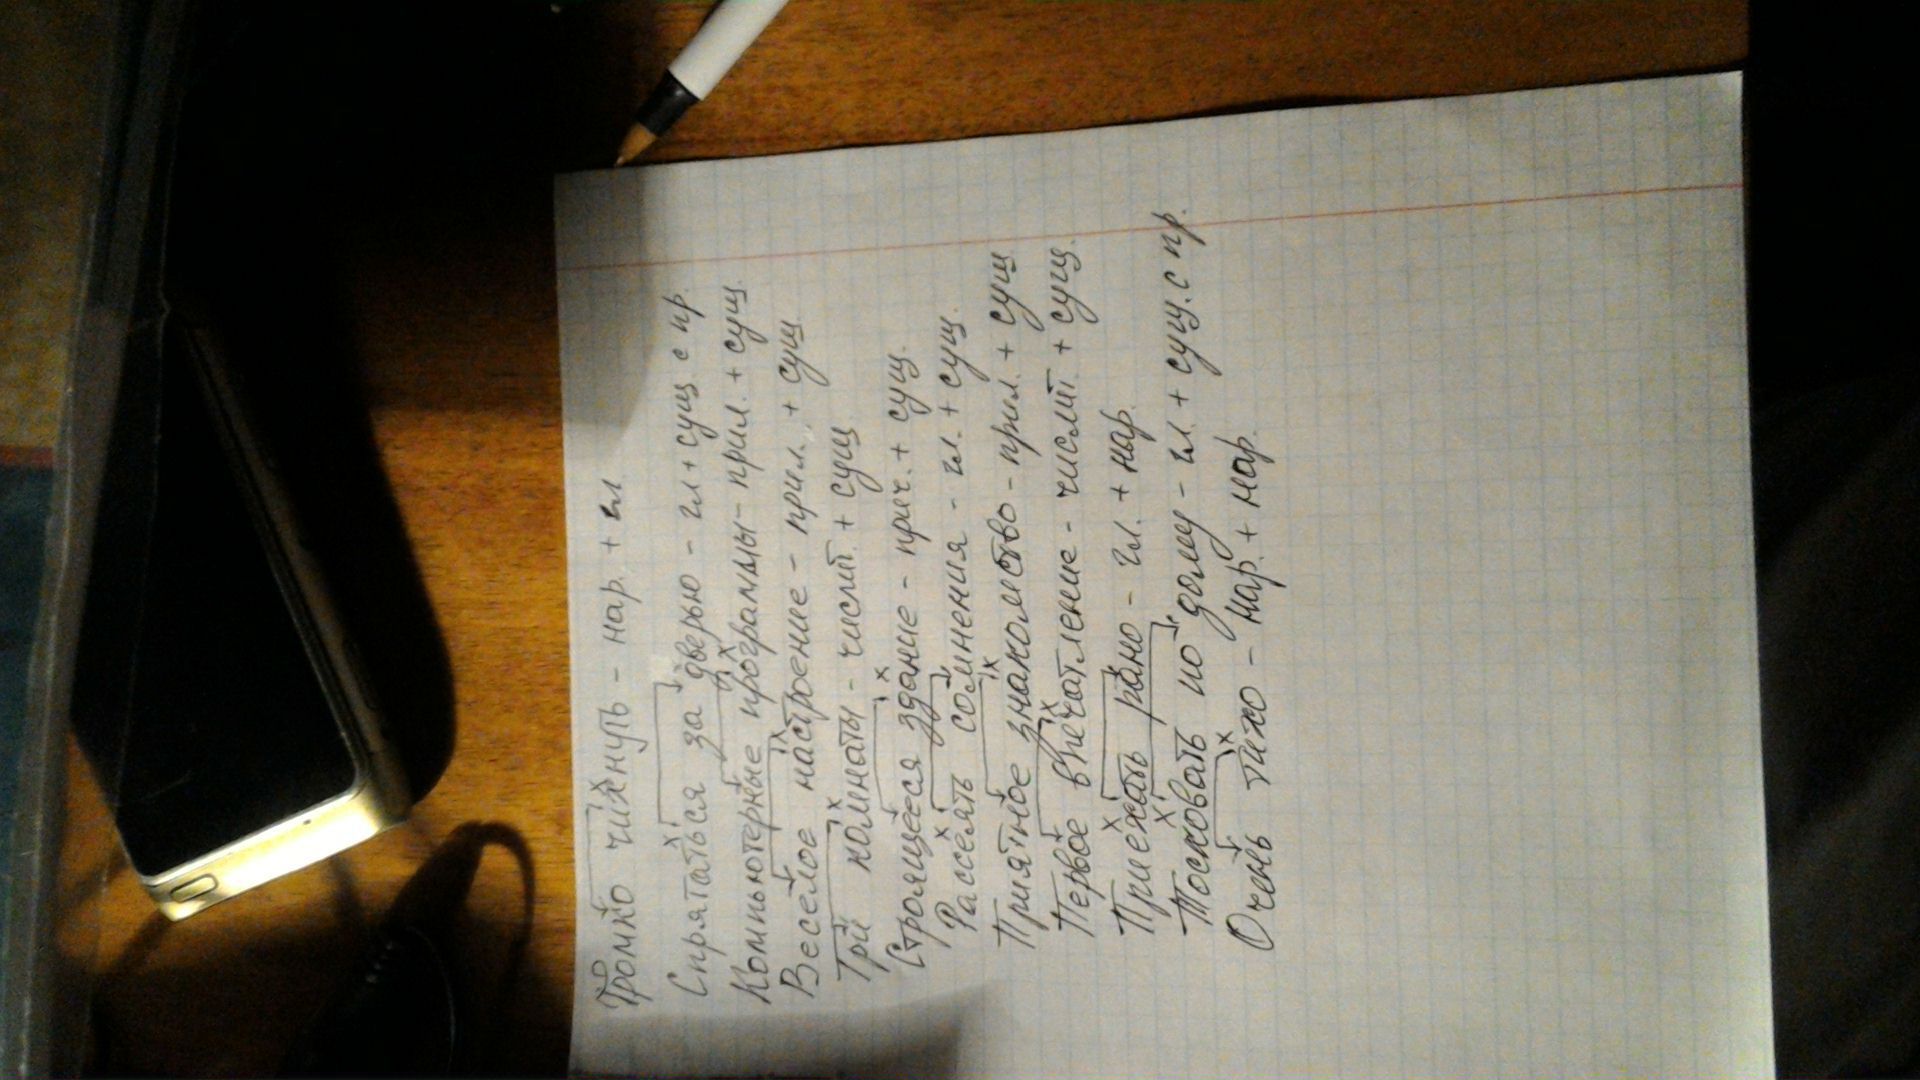 Громко чихнуть - нар. + гл
Спрятаться за дверью - гл + сущ. с пр.
Компьютерные программы - прил. + сущ.
Веселое настроение - прил. + сущ
Три комнаты - числит. + сущ
Строящееся здание - прич. + сущ.
Рассеять сомнения - гл. + сущ.
Приятное знакомство - прил. + сущ
Первое впечатление - числит. + сущ.
Приехать рано - гл. + нар.
Тосковать по дому - гл. + сущ. с пр.
Очень тихо - нар. + нар.